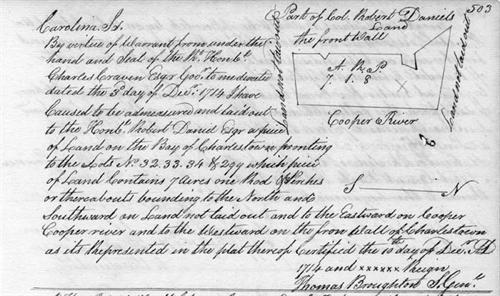 503
Carolina, Sr.
Part of Col. Robert Daniels
Land
the front Wall
Land not laid out
Land not laid out
A. R. P
7. 1. 8
Cooper River
S N
By vertue of Warrant from under the
hand and Seal of the Rt. Honble.
Charles Craven Esqr Gov. to me directed
dated the 3d day of Decr. 1714 I have
Caused to be admeasured and laid out
to the Honb. Robert Daniel Esqr a piece
of Land on the Bay of Charlestown fronting
to the Lots No. 32, 33, 34 & 299 which piece
of Land Contains 7 Acres one Rod 8 Perches
or thereabouts bounding to the North and
Southward on Land not laid out and to the Eastward on Cooper
Cooper river and to the Westward on the fron Wall of Charlestown
as its Represented in the plat thereof Certified the 10th day of Decr. AD
1714 and xxxxxx Reign
Thomas Broughton S. Genl.